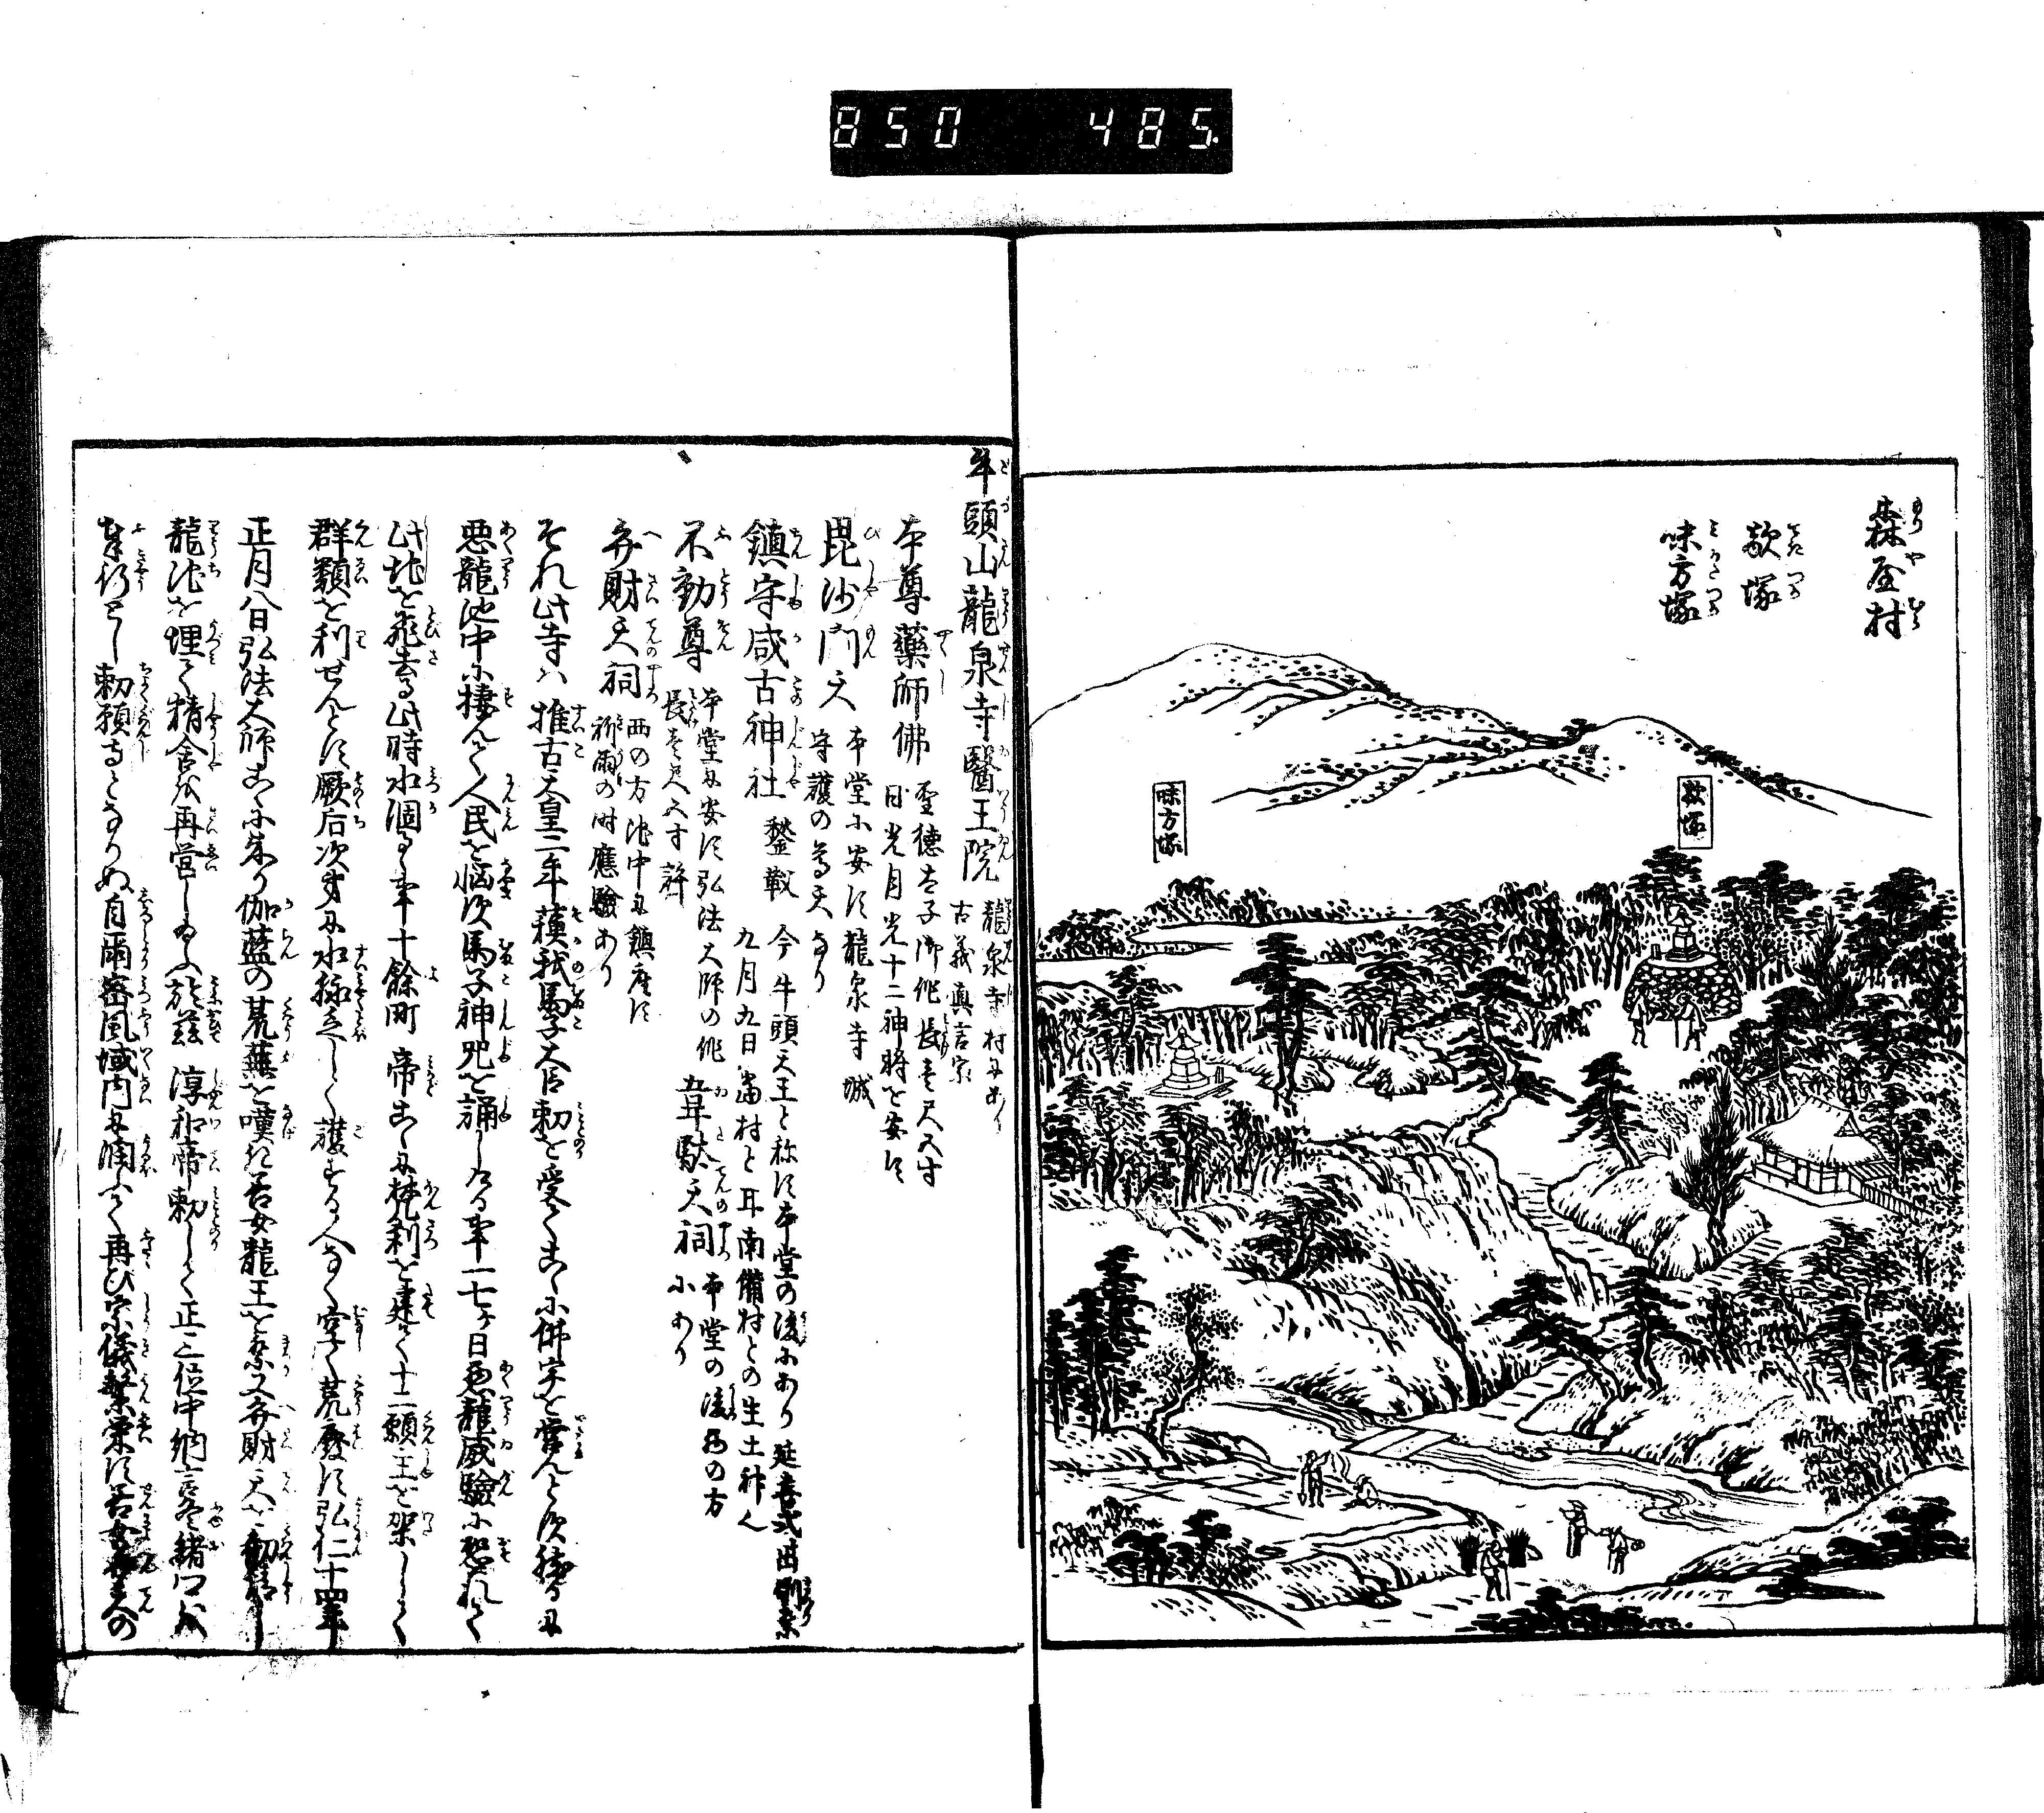 850 485
森屋村
敵塚
味方塚
敵塚
味方塚
牛頭山龍泉寺醫王院
龍泉寺村にあり
古義真言宗
本尊藥師佛
聖徳太子御作長壱尺五寸
日光月光十二神将を安ず
毘沙門天
本堂に安ず龍泉寺城
守護の尊天なり
鎮守咸古神社
鍬靫
今牛頭天王と称ず本堂の後にあり延喜式曲
九月九日當村と耳南備村との生土神
不動尊
本堂に安ず弘法大師の作
長壱尺五寸許
韋駄天祠
本堂の後西の方
にあり
弁財天祠
西の方池中に鎮座ず
祈雨の時應驗あり
それ此寺ハ推古天皇二年蘇我馬子大臣勅を受てこゝに佛宇を営んとす
悪龍池中に棲んで人民を悩ス馬子神咒を誦しける事一七ケ日悪龍威驗に恐れて
此地を飛去る此時水涸る事十餘町帝こゝに梵刹を建て十二願王を架しく
群類を利せんとす厥后次第に水脉乏しく護する人なく空く荒廢ず弘仁十四年
正月八日弘法大師こゝに来り伽藍の荒蕪を嘆き善女龍王を祭又弁財天を勧請し
龍池を埋て精舎を再営し給ふ於茲淳和帝勅して正三位中納言冬緒
奉行とし勅願寺となりぬ自爾密風域内に潤ふて再び宗儀繁栄す善女の